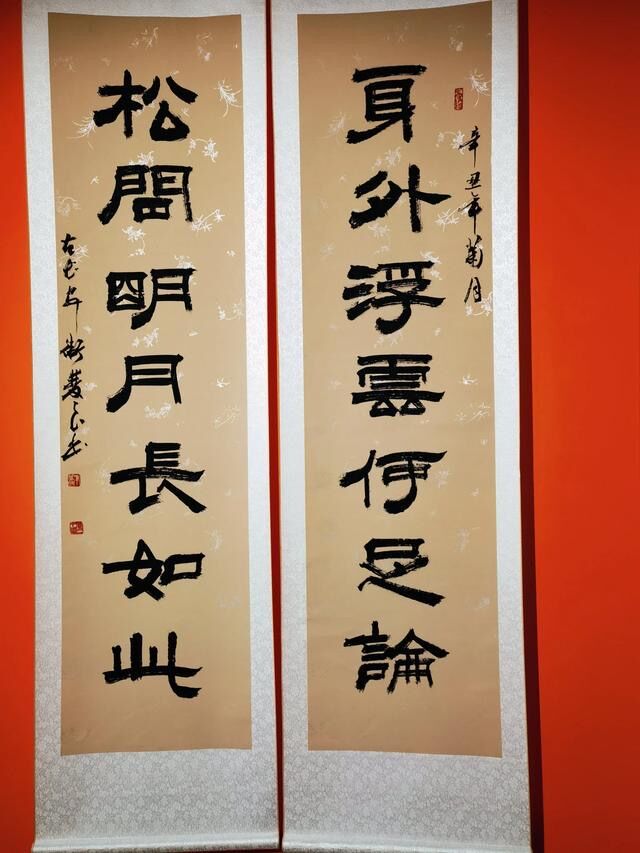 辛丑年菊月
身外浮雲何足論
松間明月長如此
古长安